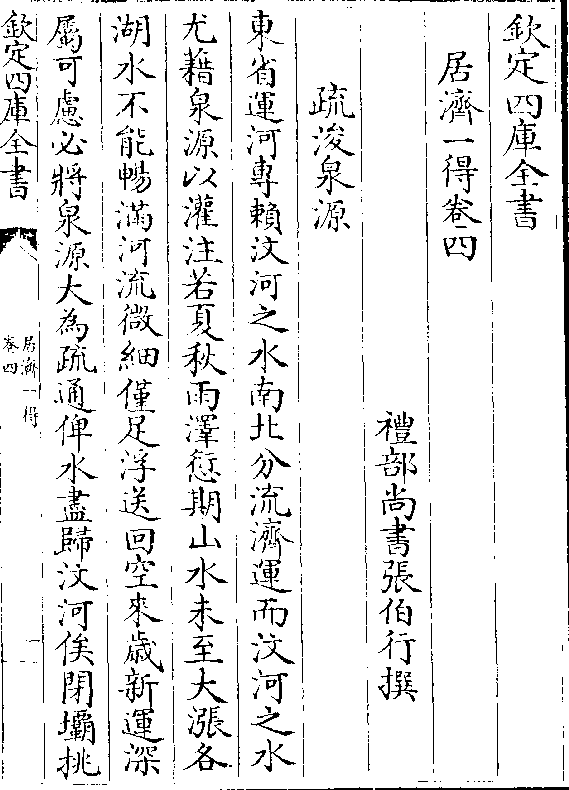 欽定四庫全書
居濟一得卷四
禮部尚書張伯行撰
疏浚泉源
東省運河專賴汶河之水南北分流濟運而汶河之水
尤藉泉源以灌注若夏秋雨澤愆期山水未至大漲各
湖水不能暢滿河流微細僅足浮送回空來歲新運深
屬可慮必將泉源大為疏通俾水盡歸汶河俟閉壩挑
欽定四庫全書
居濟一得
卷四
一